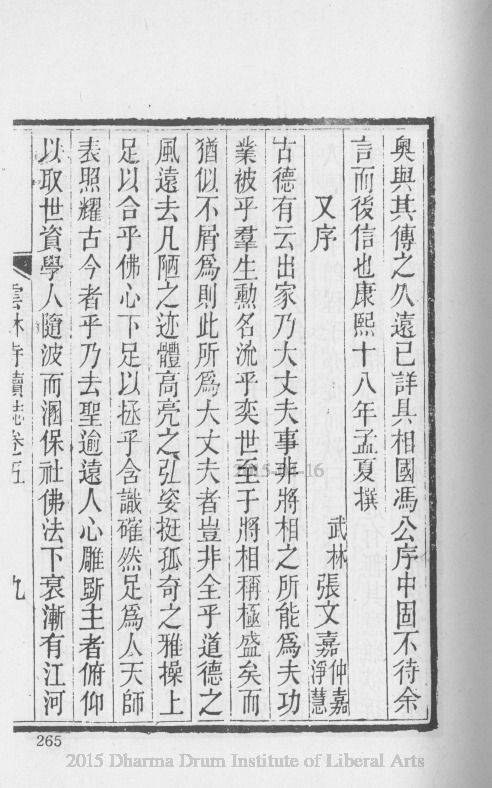 奥與其傳之久遠已詳具相國馮公序中固不待余
言而後信也康熙十八年孟夏撰
又序
武林張文嘉仲嘉淨慧
古德有云出家乃大丈夫事非將相之所能爲夫功
業被乎羣生勲名流乎奕世至于將相稱極盛矣而
猶似不屑爲則此所爲大丈夫者豈非全乎道德之
風遠去凡陋之迹體高亮之弘姿挺孤奇之雅操上
足以合乎佛心下足以拯乎含識確然足爲人天師
表照耀古今者乎乃去聖逾遠人心雕斲主者俯仰
以取世資學人隨波而溷保社佛法下衰漸有江河
雲林寺續誌卷五
九
265
2015-05-16
2015 Dharma Drum Institute of Liberal Arts